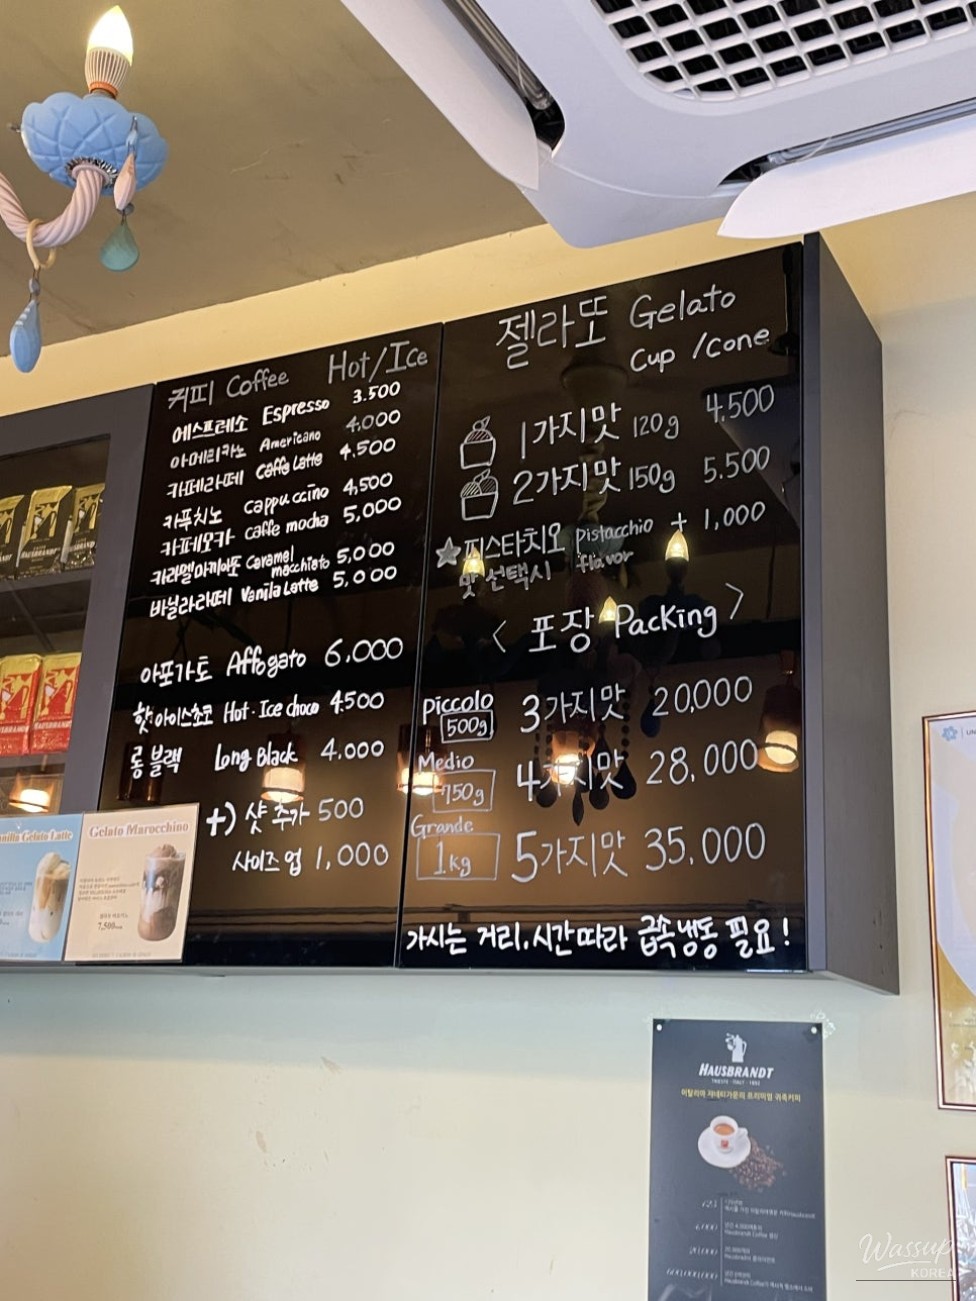 커피 Coffee Hot/Ice
에스프레소 Espresso 3.500
아메리카노 Americano 4,000
카페라떼 Caffe Latte 4.500
카푸치노 cappuccino 4,500
카페모카 caffe mocha 5,000
카라멜마끼아또 Caramel macchiato 5,000
바닐라라떼 Vanila Latte 5,000
아포가토 Affogato 6.000
핫·아이스초코 Hot·Ice choco 4.500
롱 블랙 Long Black 4.000
+) 샷 추가 500
사이즈 업 1,000
젤라또 Gelato
Cup /cone
1가지맛 120g 4.500
2가지맛 150g 5.500
피스타치오 pistacchio + 1,000
맛 선택시 flavor
< 포장 Packing >
Piccolo
500g 3가지맛 20,000
Medio
750g 4가지맛 28,000
Grande
1kg 5가지맛 35.000
가시는 거리, 시간따라 급속냉동 필요!
Gelato Latte
Gelato Marocchino
7,500
HAUSBRANDT
TRIESTE · ITALY · 1892
Wassup
KOREA